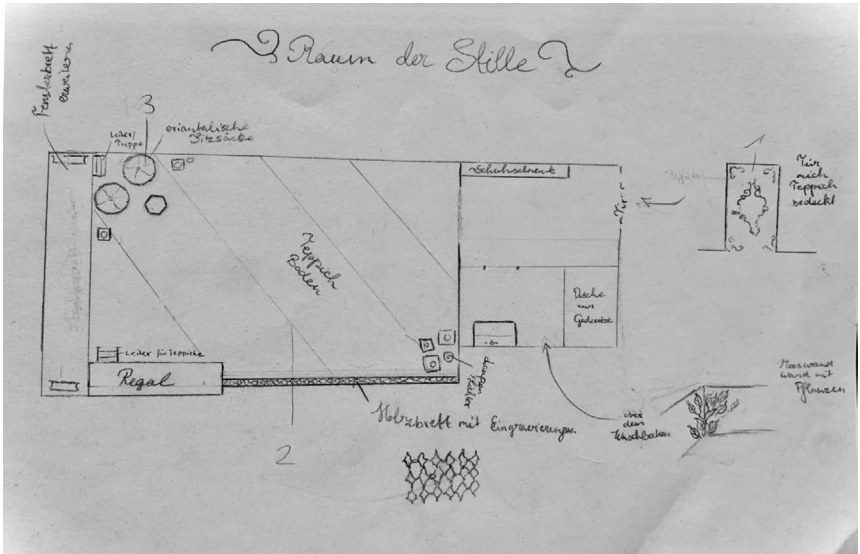 Raum der Stille
Fensterbrett
erweitern
3
Leiter/
Treppe
orientalische
Sitzsäcke
Schuhschrank
Tür
1
Tür
mich
Teppich
bedeckt
Teppich
Boden
Dusche
nur
Leiter für Teppiche
Regal
Holzbrett mit Eingravierungen
2
über
dem
Waschbecken
Mooswand
wand mit
Pflanzen